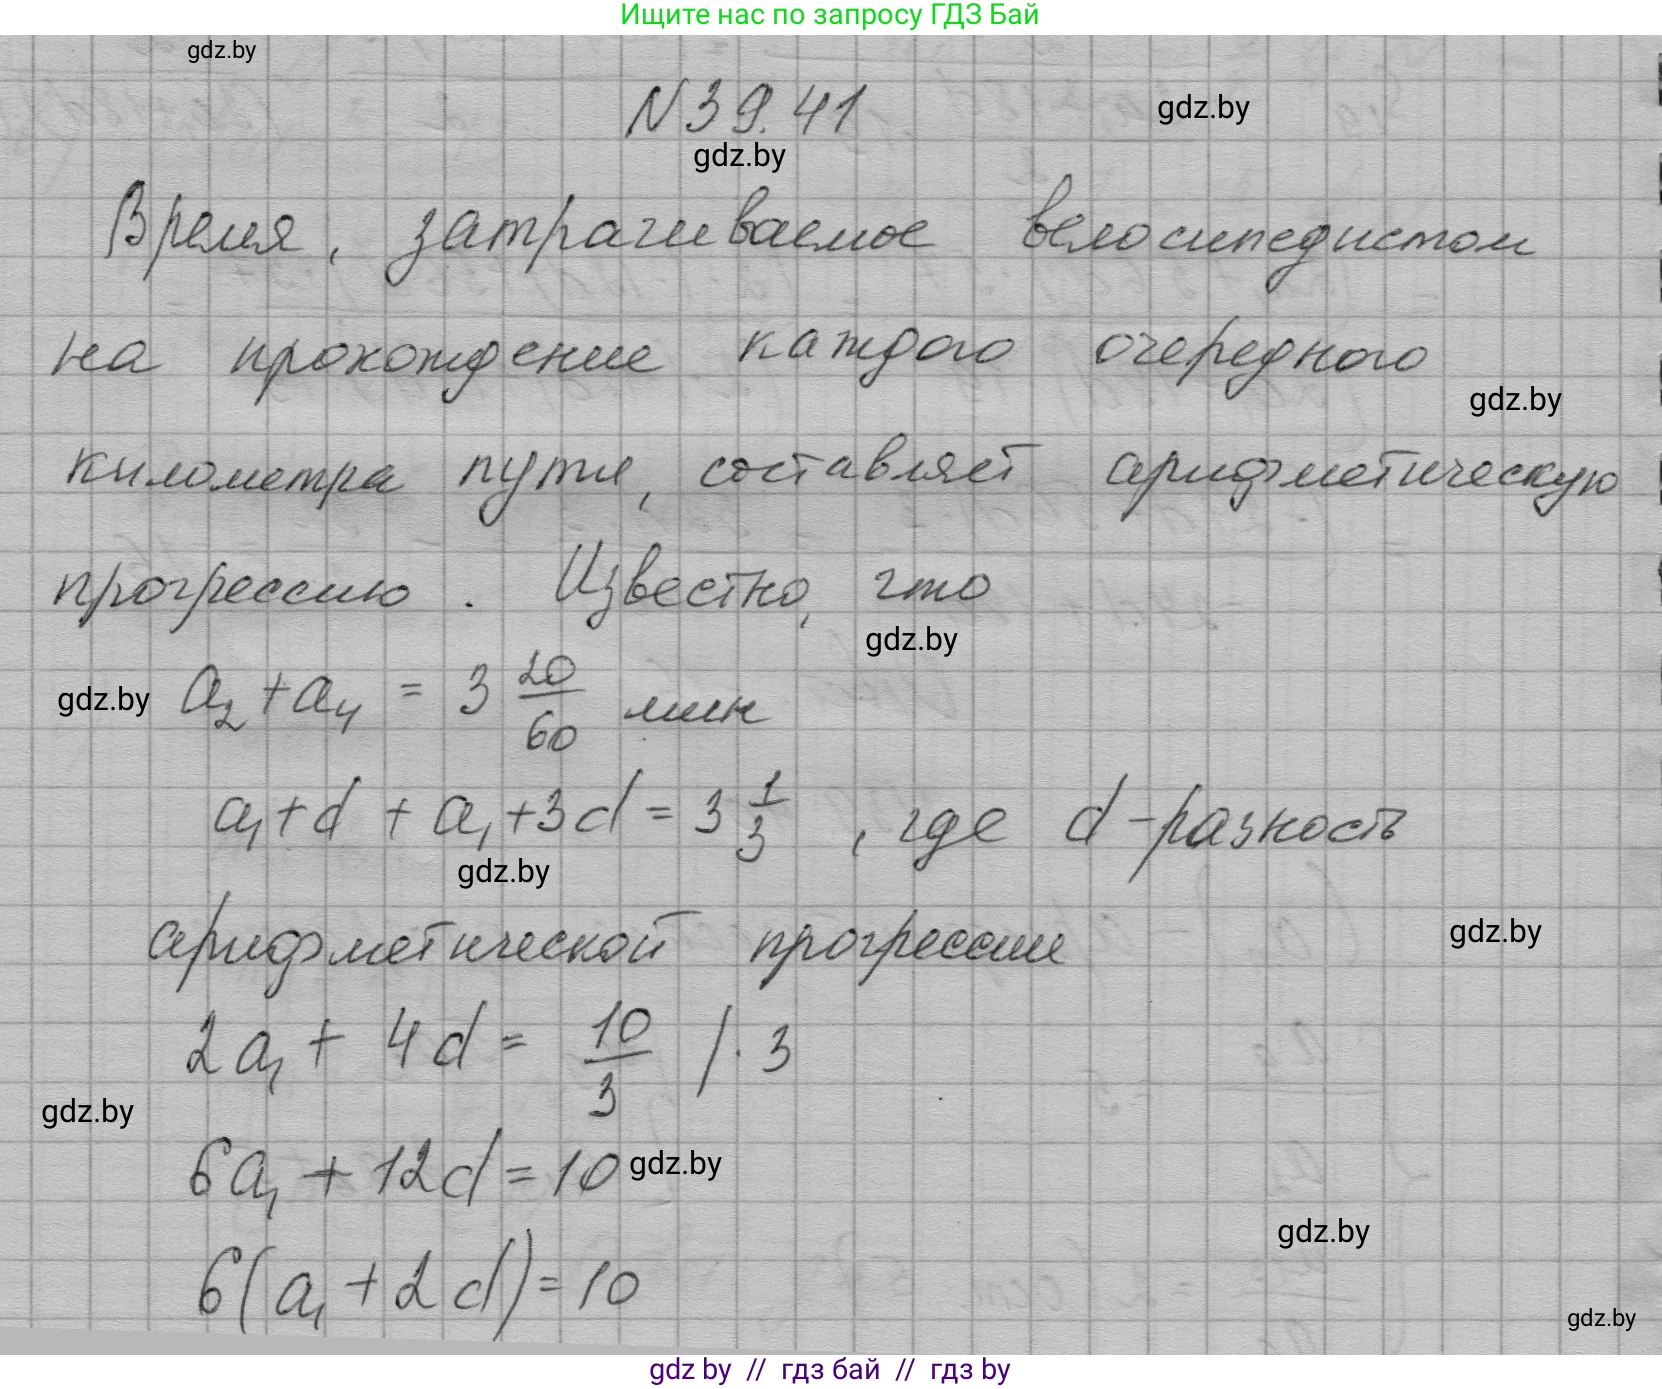 Ищите нас по запросу ГДЗ Бай
gdz.by
N39.41
gdz.by
gdz.by
Время, затрачиваемое велосипедистом
на прохождение каждого очередного
gdz.by
километра пути, составляет арифметическую
прогрессию. Известно, что
gdz.by
gdz.by a₂ + a₄ = 3 20/60 мин
a₁ + d + a₁ + 3d = 3 1/3, где d - разность
gdz.by
арифметической прогрессии
gdz.by
2a₁ + 4d = 10/3 / · 3
gdz.by
6a₁ + 12d = 10 gdz.by
gdz.by
6(a₁ + 2d) = 10
gdz.by
gdz by // гдз бай // гдз by